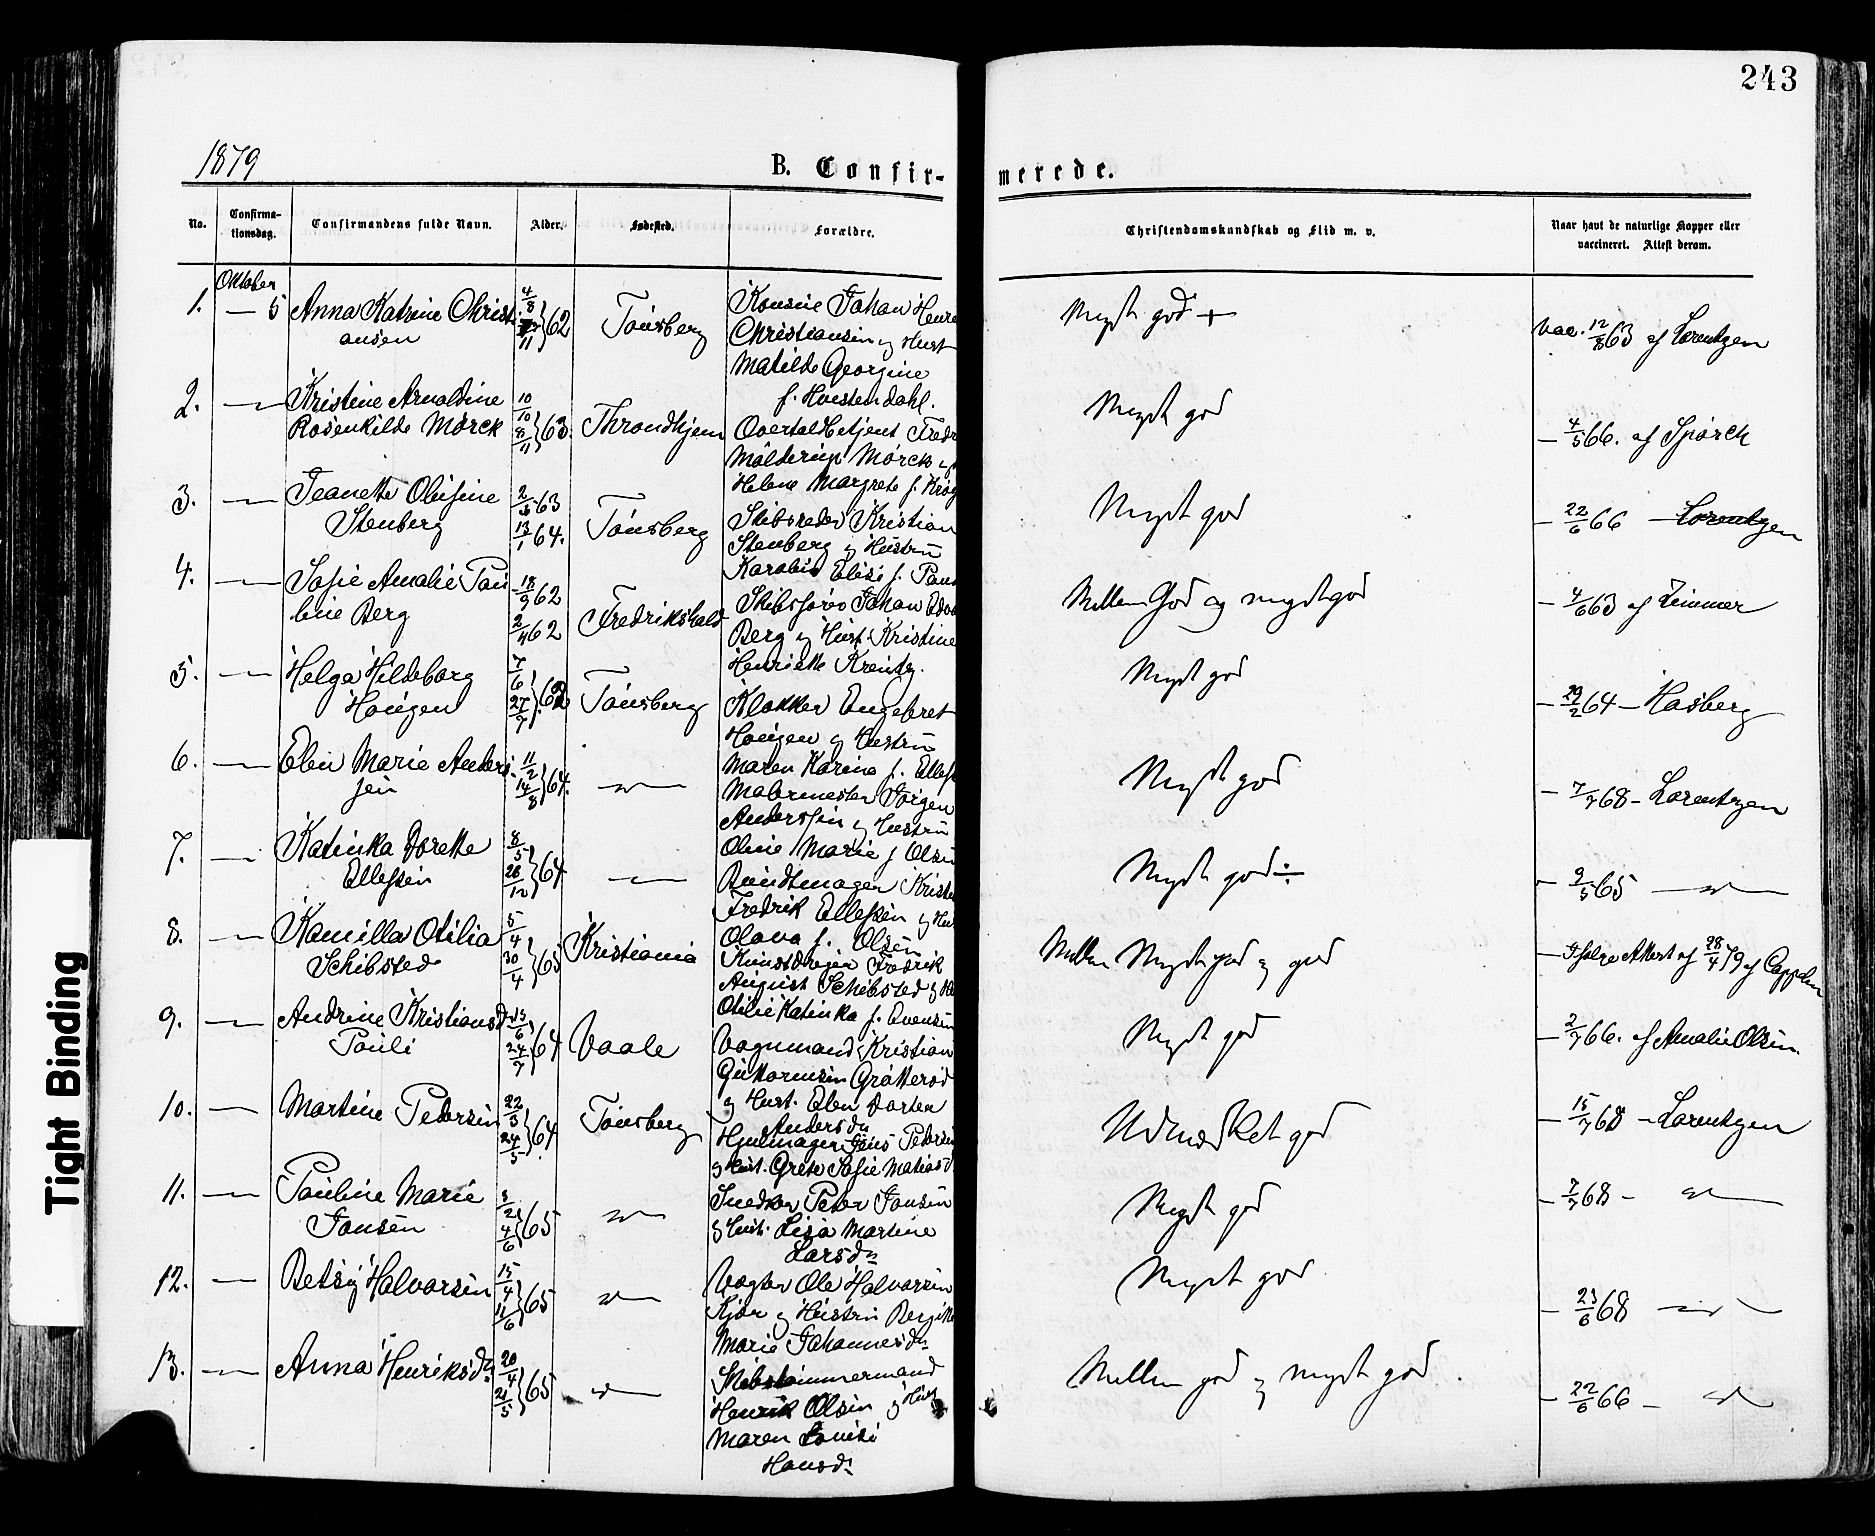 243
1879
B. Confir-
merede.
No.
Confirma-
tionsdag.
Confirmandens fulde Navn.
Alder.
Fødested.
Forældre.
Christendomskundskab og Flid m. v.
Naar havt de naturlige Kopper eller
vaccineret. Attest derom.
Oktober
1. — 5 Anna Katrine Christi
ansen
4/8 /11 } 62
Tönsberg
Johan Henr
Christiansen og Hust
Matilde Georgine
f. Hvistendahl.
Meget god +
Vac. 12/8 63 af Lorentzen
2. — Kristine Arnoldine
Rosenkilde Mørck
10/10 8/11 } 63.
Throndhjem
Overtoldbetjent Fredr
Mølderup Mørck og
Helene Margrete f. Krog
Meget god
— 4/5 66. af Spørck
3. — Jeanette Olufine
Stenberg
2/ 63
13/1 64.
Tönsberg
Skibsreder Kristian
Stenberg og Hustru
Elise f. Paus
Meget god
— 22/6 66 — Lorentzen
4. — Sofie Amalie Pau
line Berg
18/9 62
2/4 62
Fredrikshald
Skibsfører Johan Edva
Berg og Hust. Kristine
Henriette
Mellem God og meget god
— 4/6 63 af Zimmer
5. — Helga Hildeborg
Haugen
7/6 27/7 } 62
Tönsberg
Klokker Engebret
Haugen og Hustru
Maren Karine f. Ellefs
Meget god
— 29/2 64 — Hasberg
6. — Elen Marie Anders
sen
11/2 14/8 } 64.
— " —
Malermester Jörgen
Anderssen og Hustru
Oline Marie f. Olsen
Meget god
— 7/7 68 — Lorentzen
7. — Katinka Dorette
Ellefsen
8/5 26/12 } 64
— " —
Bundtmager Kristen
Fredrik Ellefsen og Hu
Olava f. Olsen
Meget god ÷
— 9/5 65 — " —
8. — Kamilla Otilia
Schibsted
5/4 30/4 } 65
Kristiania
Kunstdreier Fredrik
August Schibsted og H
Otilie Katinka f. Evensen
Mellem Meget god og god
— Ifølge Attest af 28/4 79 af Cappelen
9. — Andrine Kristiansd.
Pauli
15/6 24/7 } 64
Vaale
Vognmand Kristian
Guttormsen Gråtterød
og Hust. Elen Dorten
Andersdn
Meget god
— 2/7 66. af Amalie Olsen.
10. — Martine Pedersen
22/3 24/5 } 64
Tönsberg
Hjulmager Jens Pedersen
og Hust. Grete Sofie Matiasd
Udmærket god
— 15/7 68 — Lorentzen
11. — Pauline Marie
Jansen
3/2 4/6 } 65
— " —
Snedker Peter Jansen
og Hust. Lisa Martine
Larsdn
Meget god
— 7/7 68 — " —
12. — Betsy Halvorsen
15/4 11/6 } 65
— " —
Vægter Ole Halvorsen
Kjær og Hustru Bergitte
Marie Johannesdn
Meget god
— 23/6 68 — " —
13. — Anna Henriksdn
20/4 21/5 } 65
— " —
Skibstømmermand
Henrik Olsen og Hust
Maren Lovise
Hansdn
Mellem god og meget god
— 22/6 66 — " —
Tight Binding